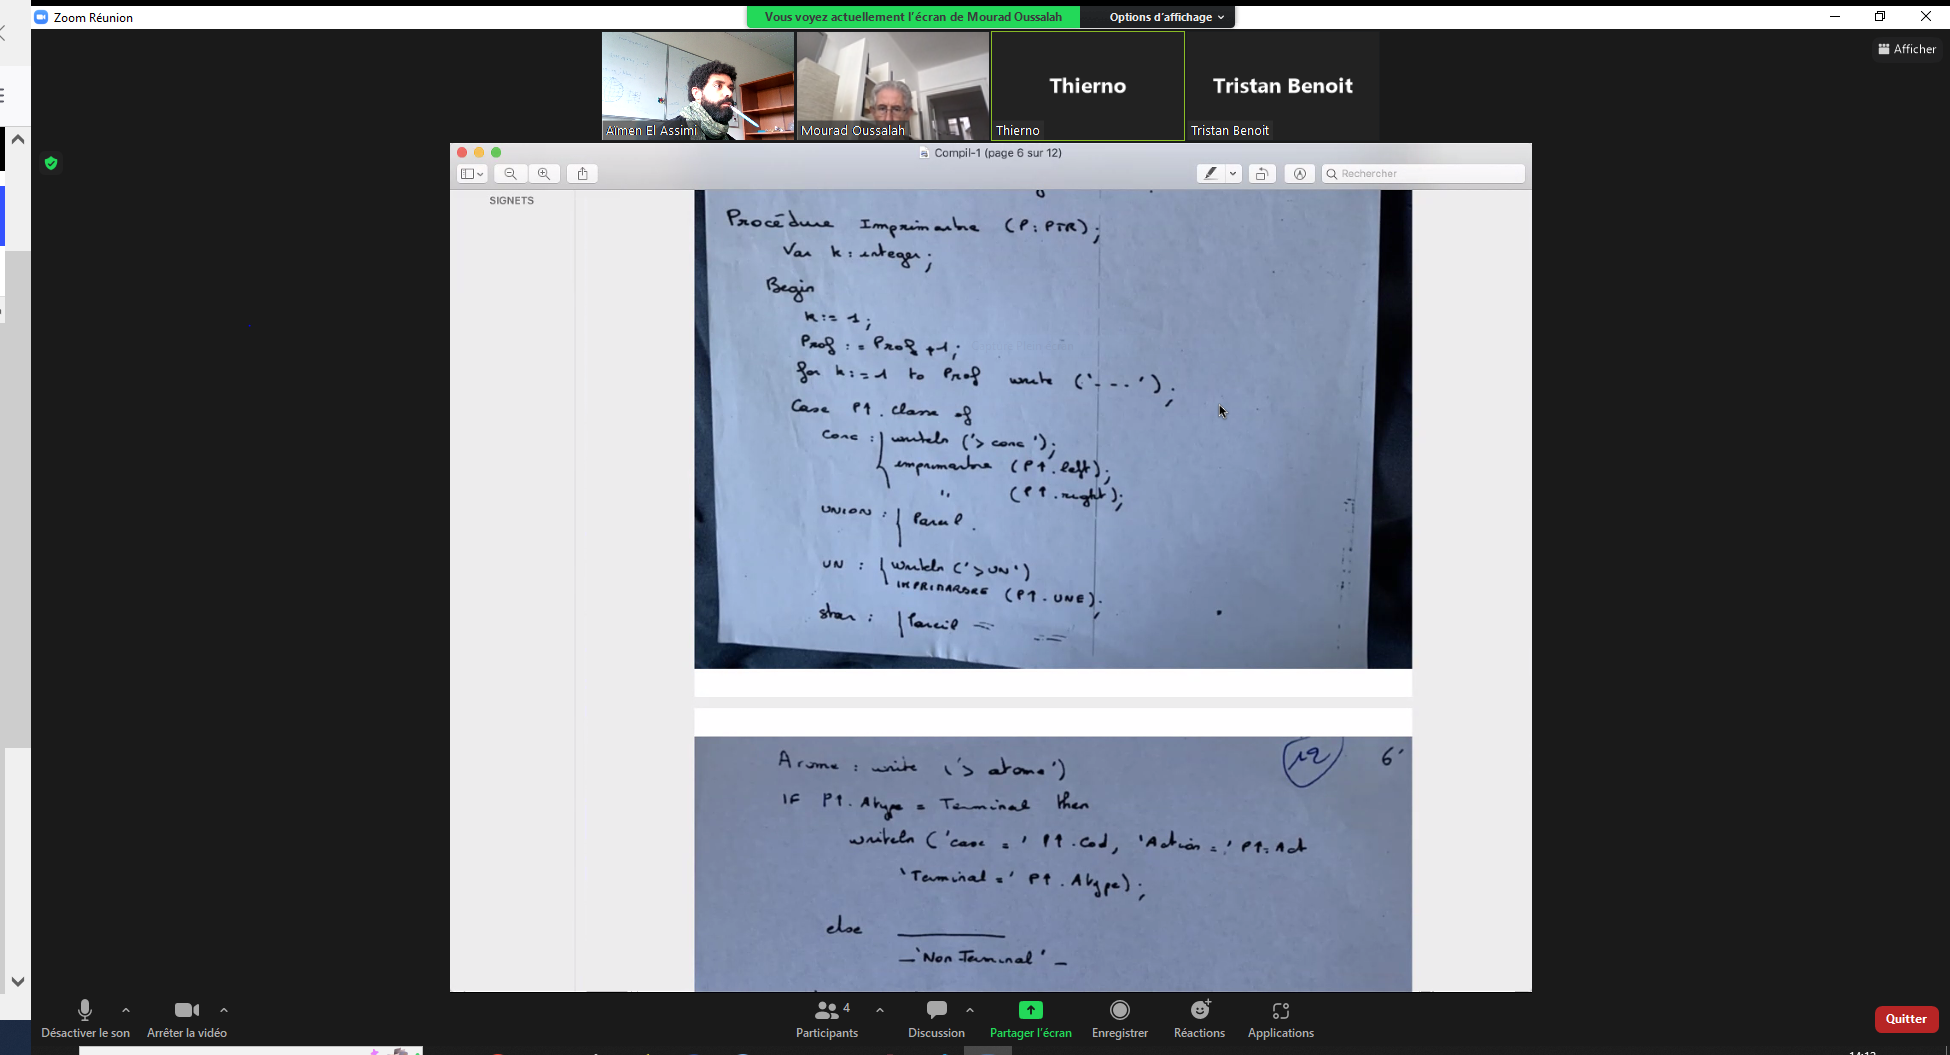 Zoom Réunion
Vous voyez actuellement l'écran de Mourad Oussalah
Options d'affichage
Afficher
Thierno
Tristan Benoit
Aïmen El Assimi
Mourad Oussalah
Thierno
Tristan Benoit
Compil-1 (page 6 sur 12)
Rechercher
SIGNETS
Procédure Imprimarbre (P: PTR);
Var k: integer;
Begin
k:= 1;
Prof := Prof +1;
for k:=1 to Prof write ('---');
Case P↑.classe of
conc : writeln ('> conc');
imprimarbre (P↑.left);
" (P↑.right);
UNION : Pareil.
UN : writeln ('>UN')
IMPRIMARBRE (P↑.UNE);
star : Pareil = =
12 6'
Atome : write ('> atome')
IF P↑.Atype = Terminal then
writeln ('case =' P↑.cod, 'Action =' P↑.Act
'Terminal =' P↑.Atype);
else
— 'Non Terminal' —
Désactiver le son
Arrêter la vidéo
4
Participants
Discussion
Partager l'écran
Enregistrer
Réactions
Applications
Quitter